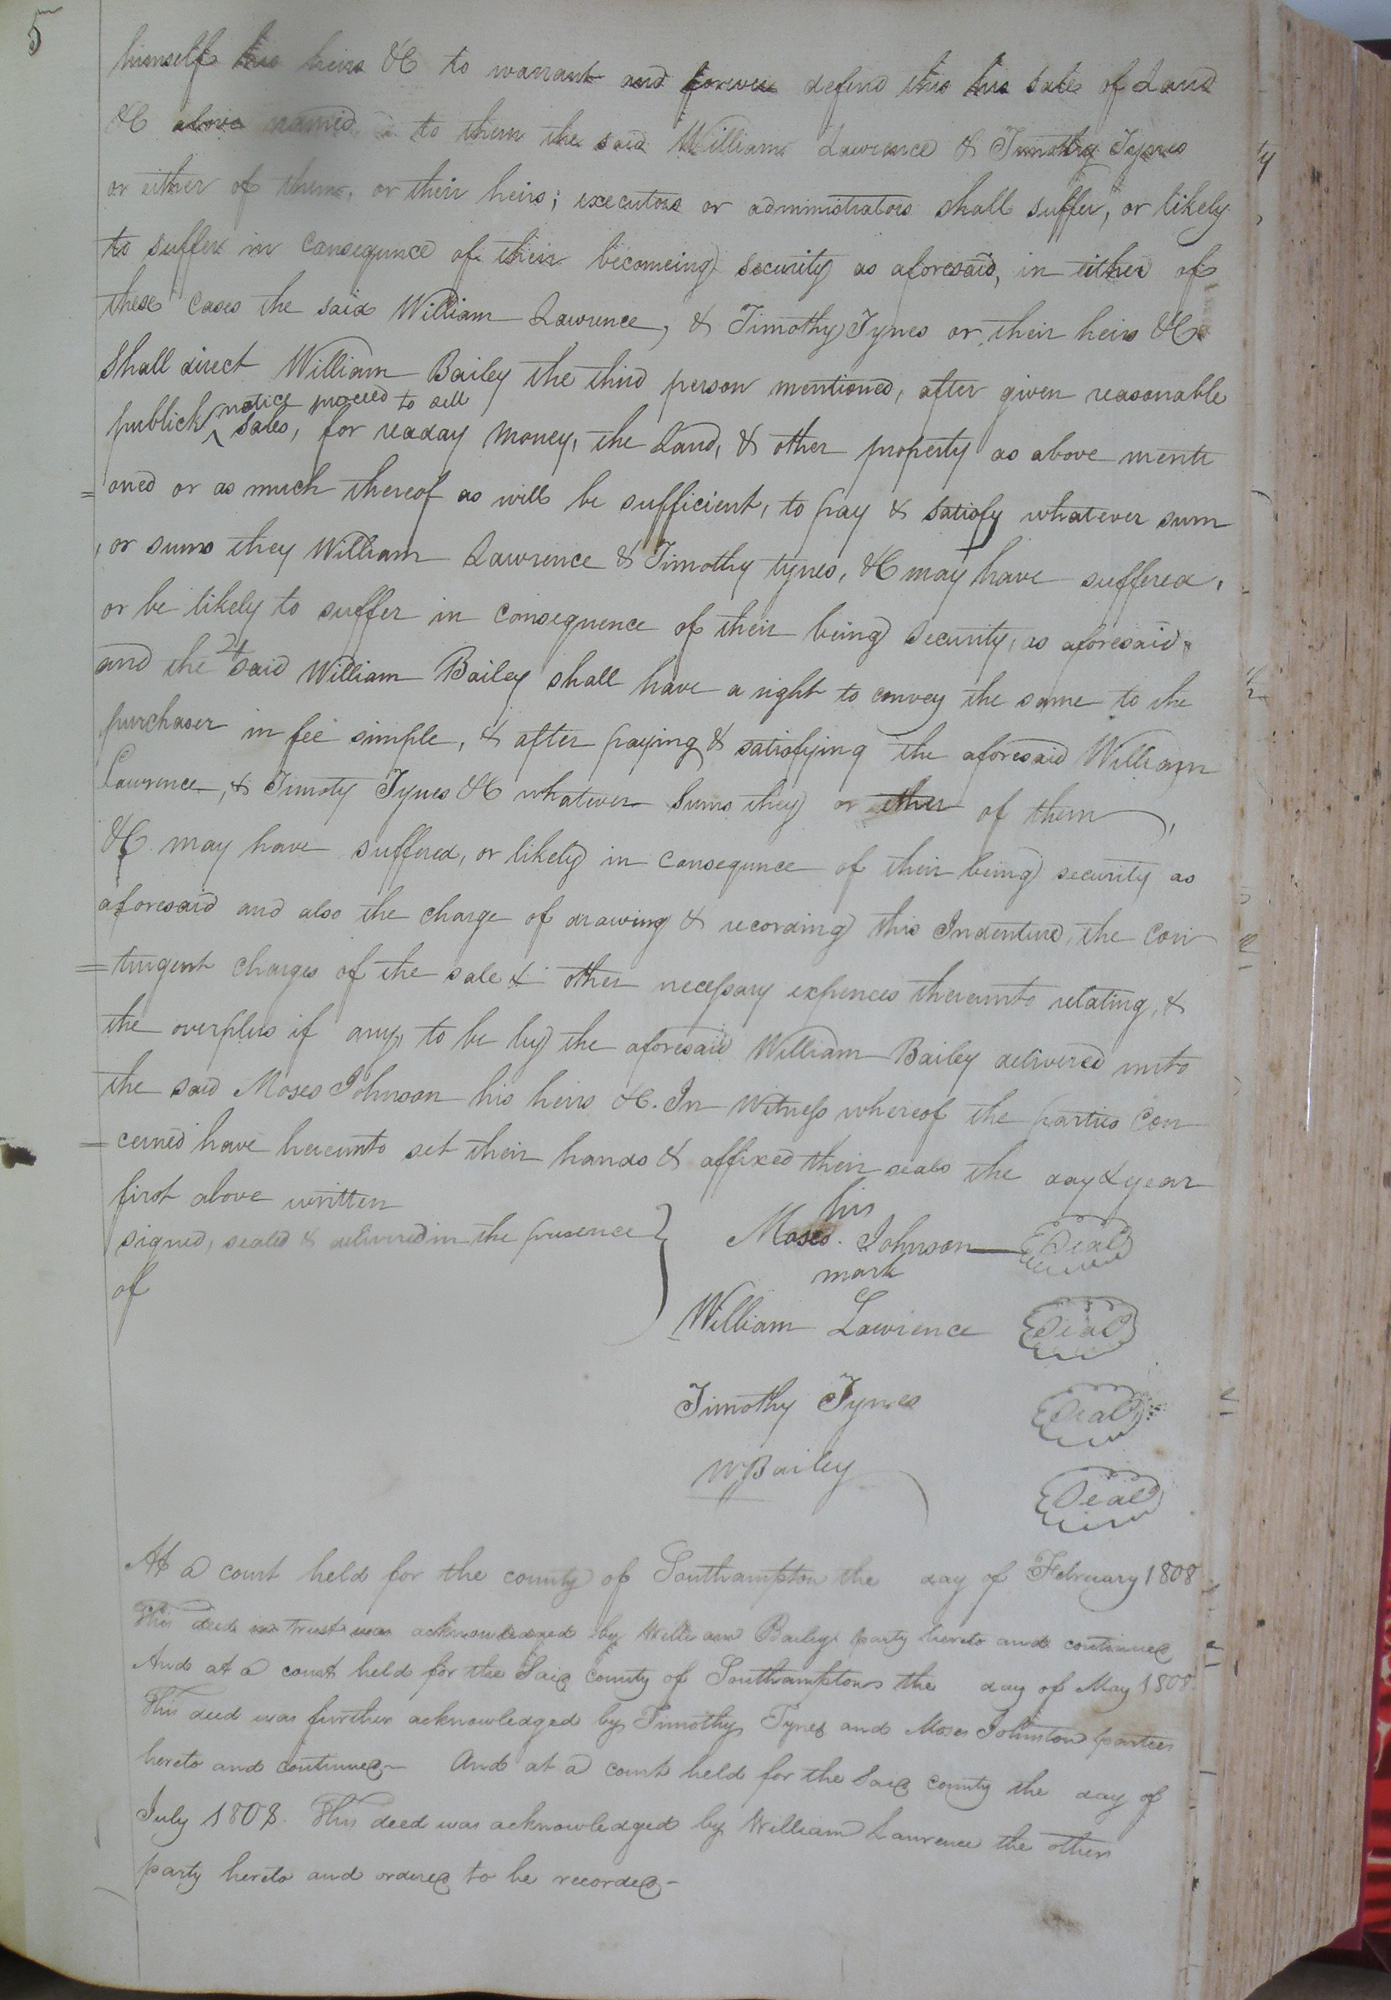 5
himself his heirs &C to warrant and forever defend this his sale of Land
&C above named to them the said William Lawrence & Timothy Tynes
or either of them, or their heirs; executors or administrators shall suffer, or likely
to suffer in consequnce of their becomeing security as aforesaid, in either of
these Cases the said William Lawrence, & Timothy Tynes or their heirs &C
shall direct William Bailey the third person mentioned, after given reasonable
notice proceed to sell
publick ^ sales, for readay money, the Land, & other property as above menti
= oned or as much thereof as will be sufficient, to pay & satisfy whatever sum
, or sums they William Lawrence & Timothy tynes, &C may have suffered,
or be likely to suffer in consequence of their being security, as aforesaid
and the said William Bailey shall have a right to convey the same to the
purchaser in fee simple, & after paying & satisfying the aforesaid William
Lawrence, & Timoty Tynes &C whatever Sums they or ether of them,
&C may have suffered, or likely in consequnce of their being security as
aforesaid and also the charge of drawing & recording this Indenture, the con
= tingent charges of the sale & other necessary expences thereunto relating, &
the overplus if any, to be by the aforesaid William Bailey delivered unto
the said Moses Johnson his heirs &C. In Witness whereof the parties Con
= cerned have hereunto set their hands & affixed their seals the day & year
first above written
signed, sealed & delivered in the presence
of
his
Moses Johnson Seal
mark
William Lawrence Seal
Timothy Tynes Seal
W Bailey Seal
At a court held for the county of Southampton the day of February 1808
This deed in trust was acknowledged by William Bailey party hereto and continued
And at a court held for the Said County of Southampton the day of May 1808
This deed was further acknowledged by Timothy Tynes and Moses Johnston parties
hereto and continued - And at a court held for the Said County the day of
July 1808. This deed was acknowledged by William Laurence the other
party hereto and ordered to be recorded -